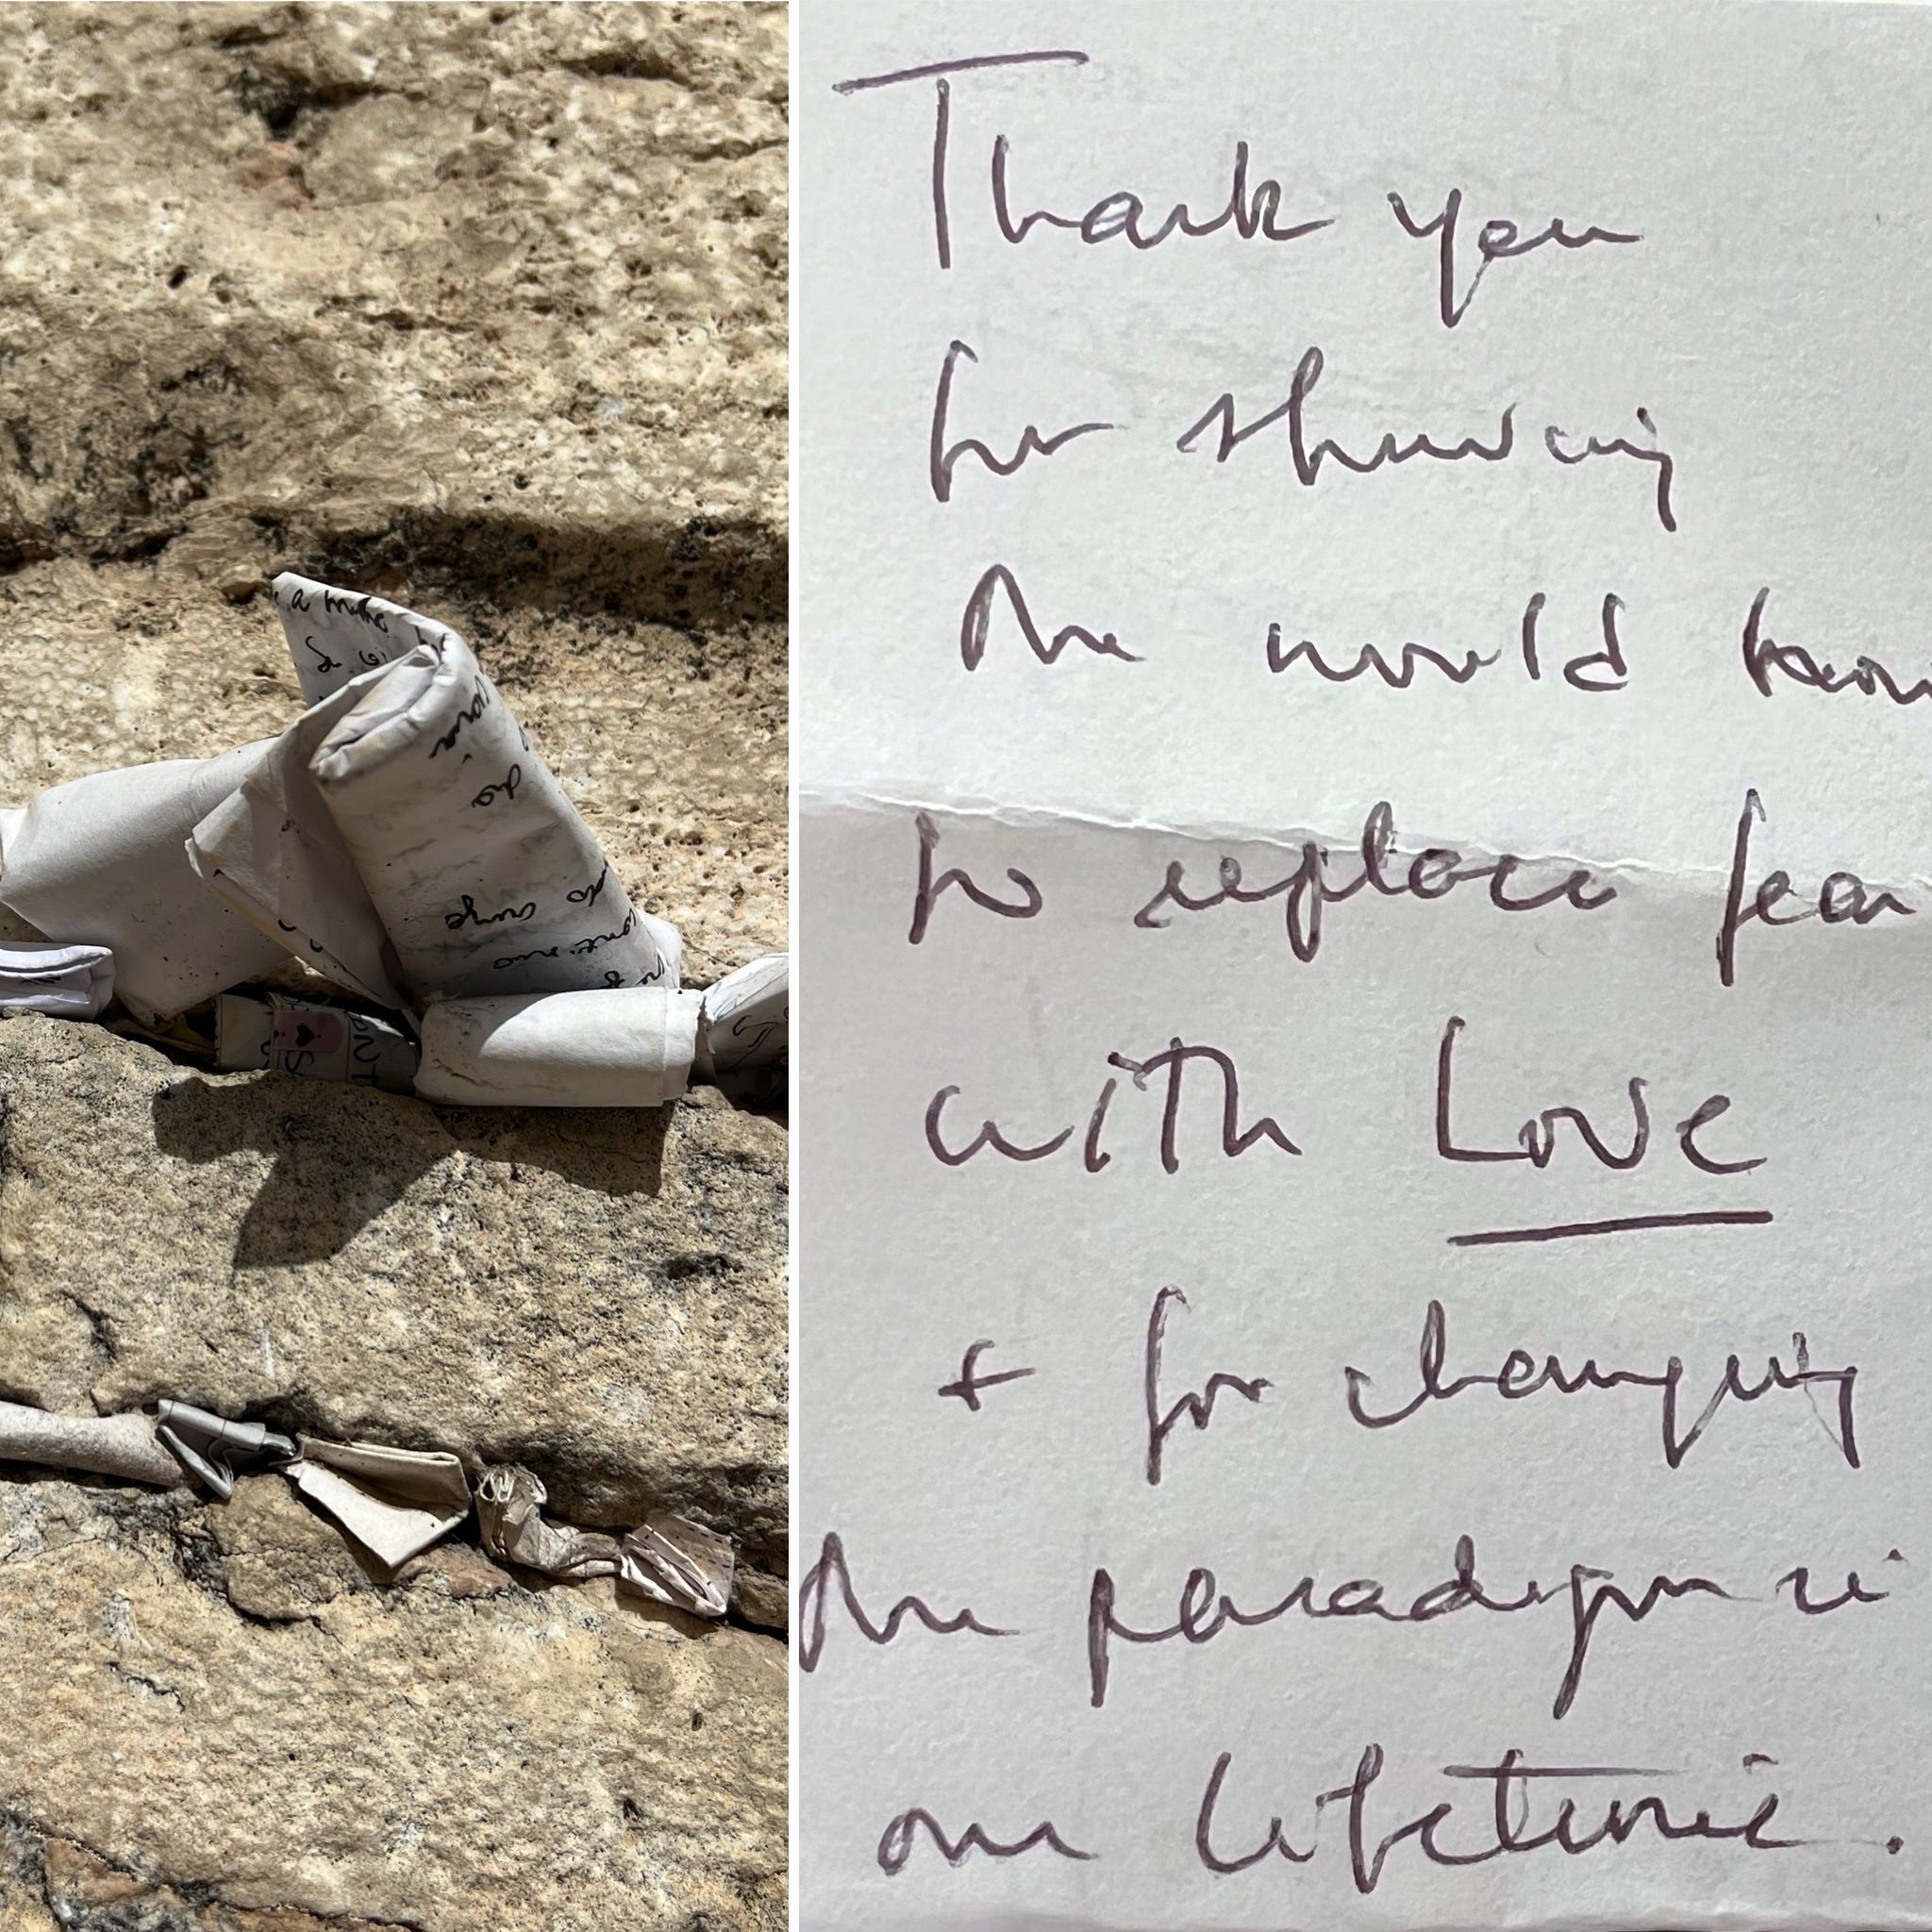 Thank you
for showing
the world how
to replace fear
with Love
+ for changing
the paradigm in
our lifetime.